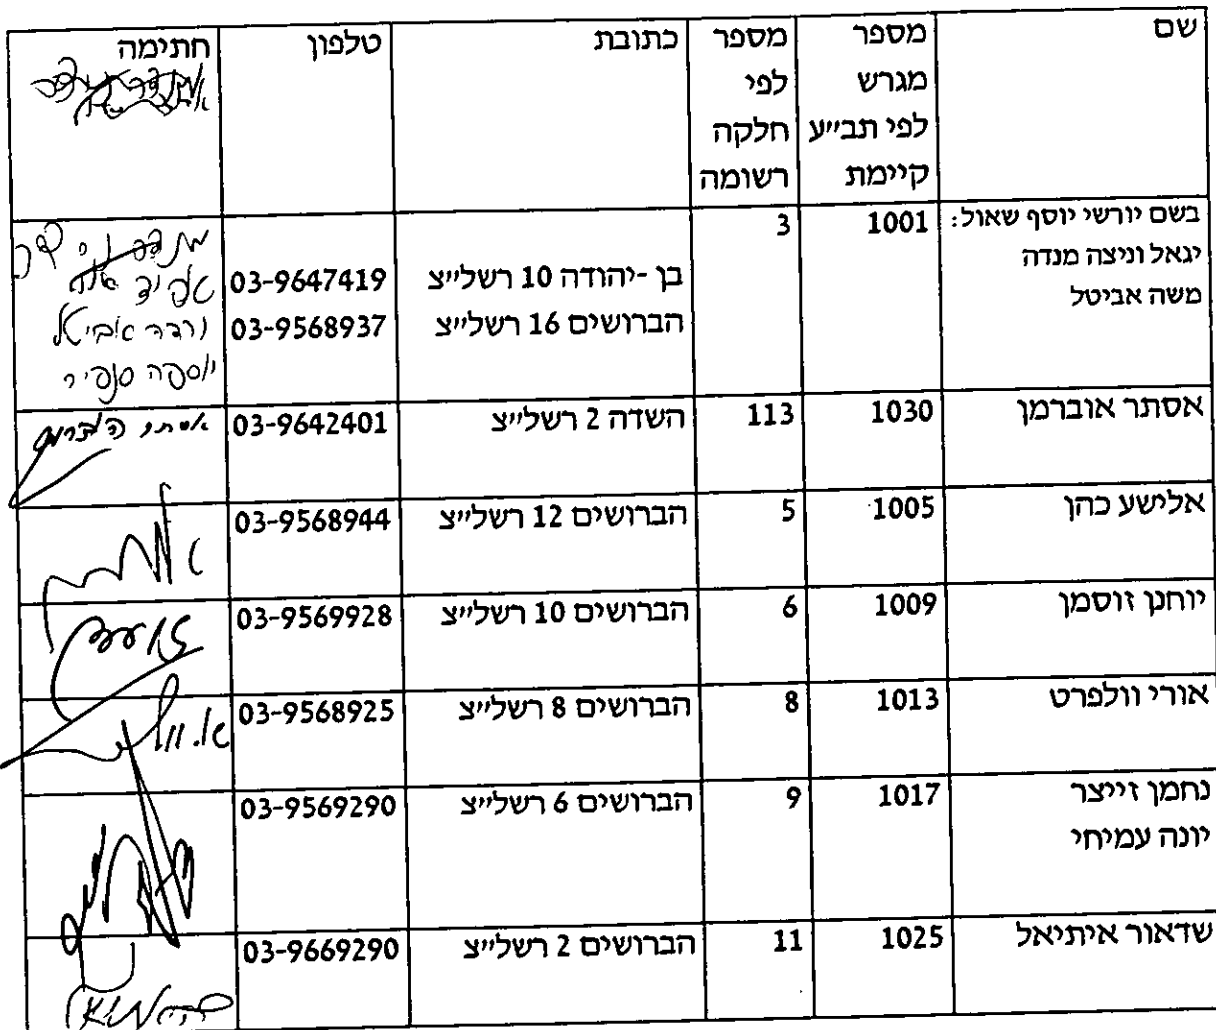 שם מספר מגרש לפי תב״ע קיימת מספר לפי חלקה רשומה כתובת טלפון חתימה
בשם יורשי יוסף שאול: 1001 3
יגאל וניצה מנדה בן -יהודה 10 רשל״צ 03-9647419
משה אביטל הברושים 16 רשל״צ 03-9568937 ורדה אביטל
יוספה ספיר
אסתר אוברמן 1030 113 השדה 2 רשל״צ 03-9642401 אסתר אוברמן
אלישע כהן 1005 5 הברושים 12 רשל״צ 03-9568944
יוחנן זוסמן 1009 6 הברושים 10 רשל״צ 03-9569928
אורי וולפרט 1013 8 הברושים 8 רשל״צ 03-9568925
נחמן זייצר 1017 9 הברושים 6 רשל״צ 03-9569290
יונה עמיחי
שדאור איתיאל 1025 11 הברושים 2 רשל״צ 03-9669290